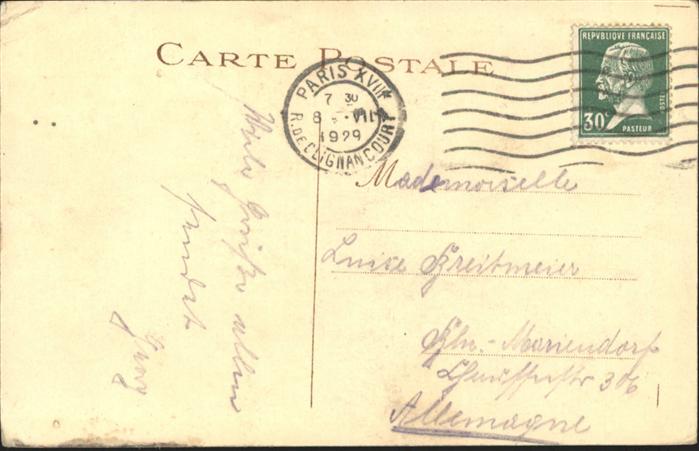 CARTE POSTALE
PARIS XVIII
7 30
8 - VII
1929
R. DE CLIGNANCOURT
REPUBLIQUE FRANÇAISE
POSTES
30c
PASTEUR
Mademoiselle
Luise Breitmeier
Bln.-Mariendorf
306
Allemagne
Viele Grüße
sendet